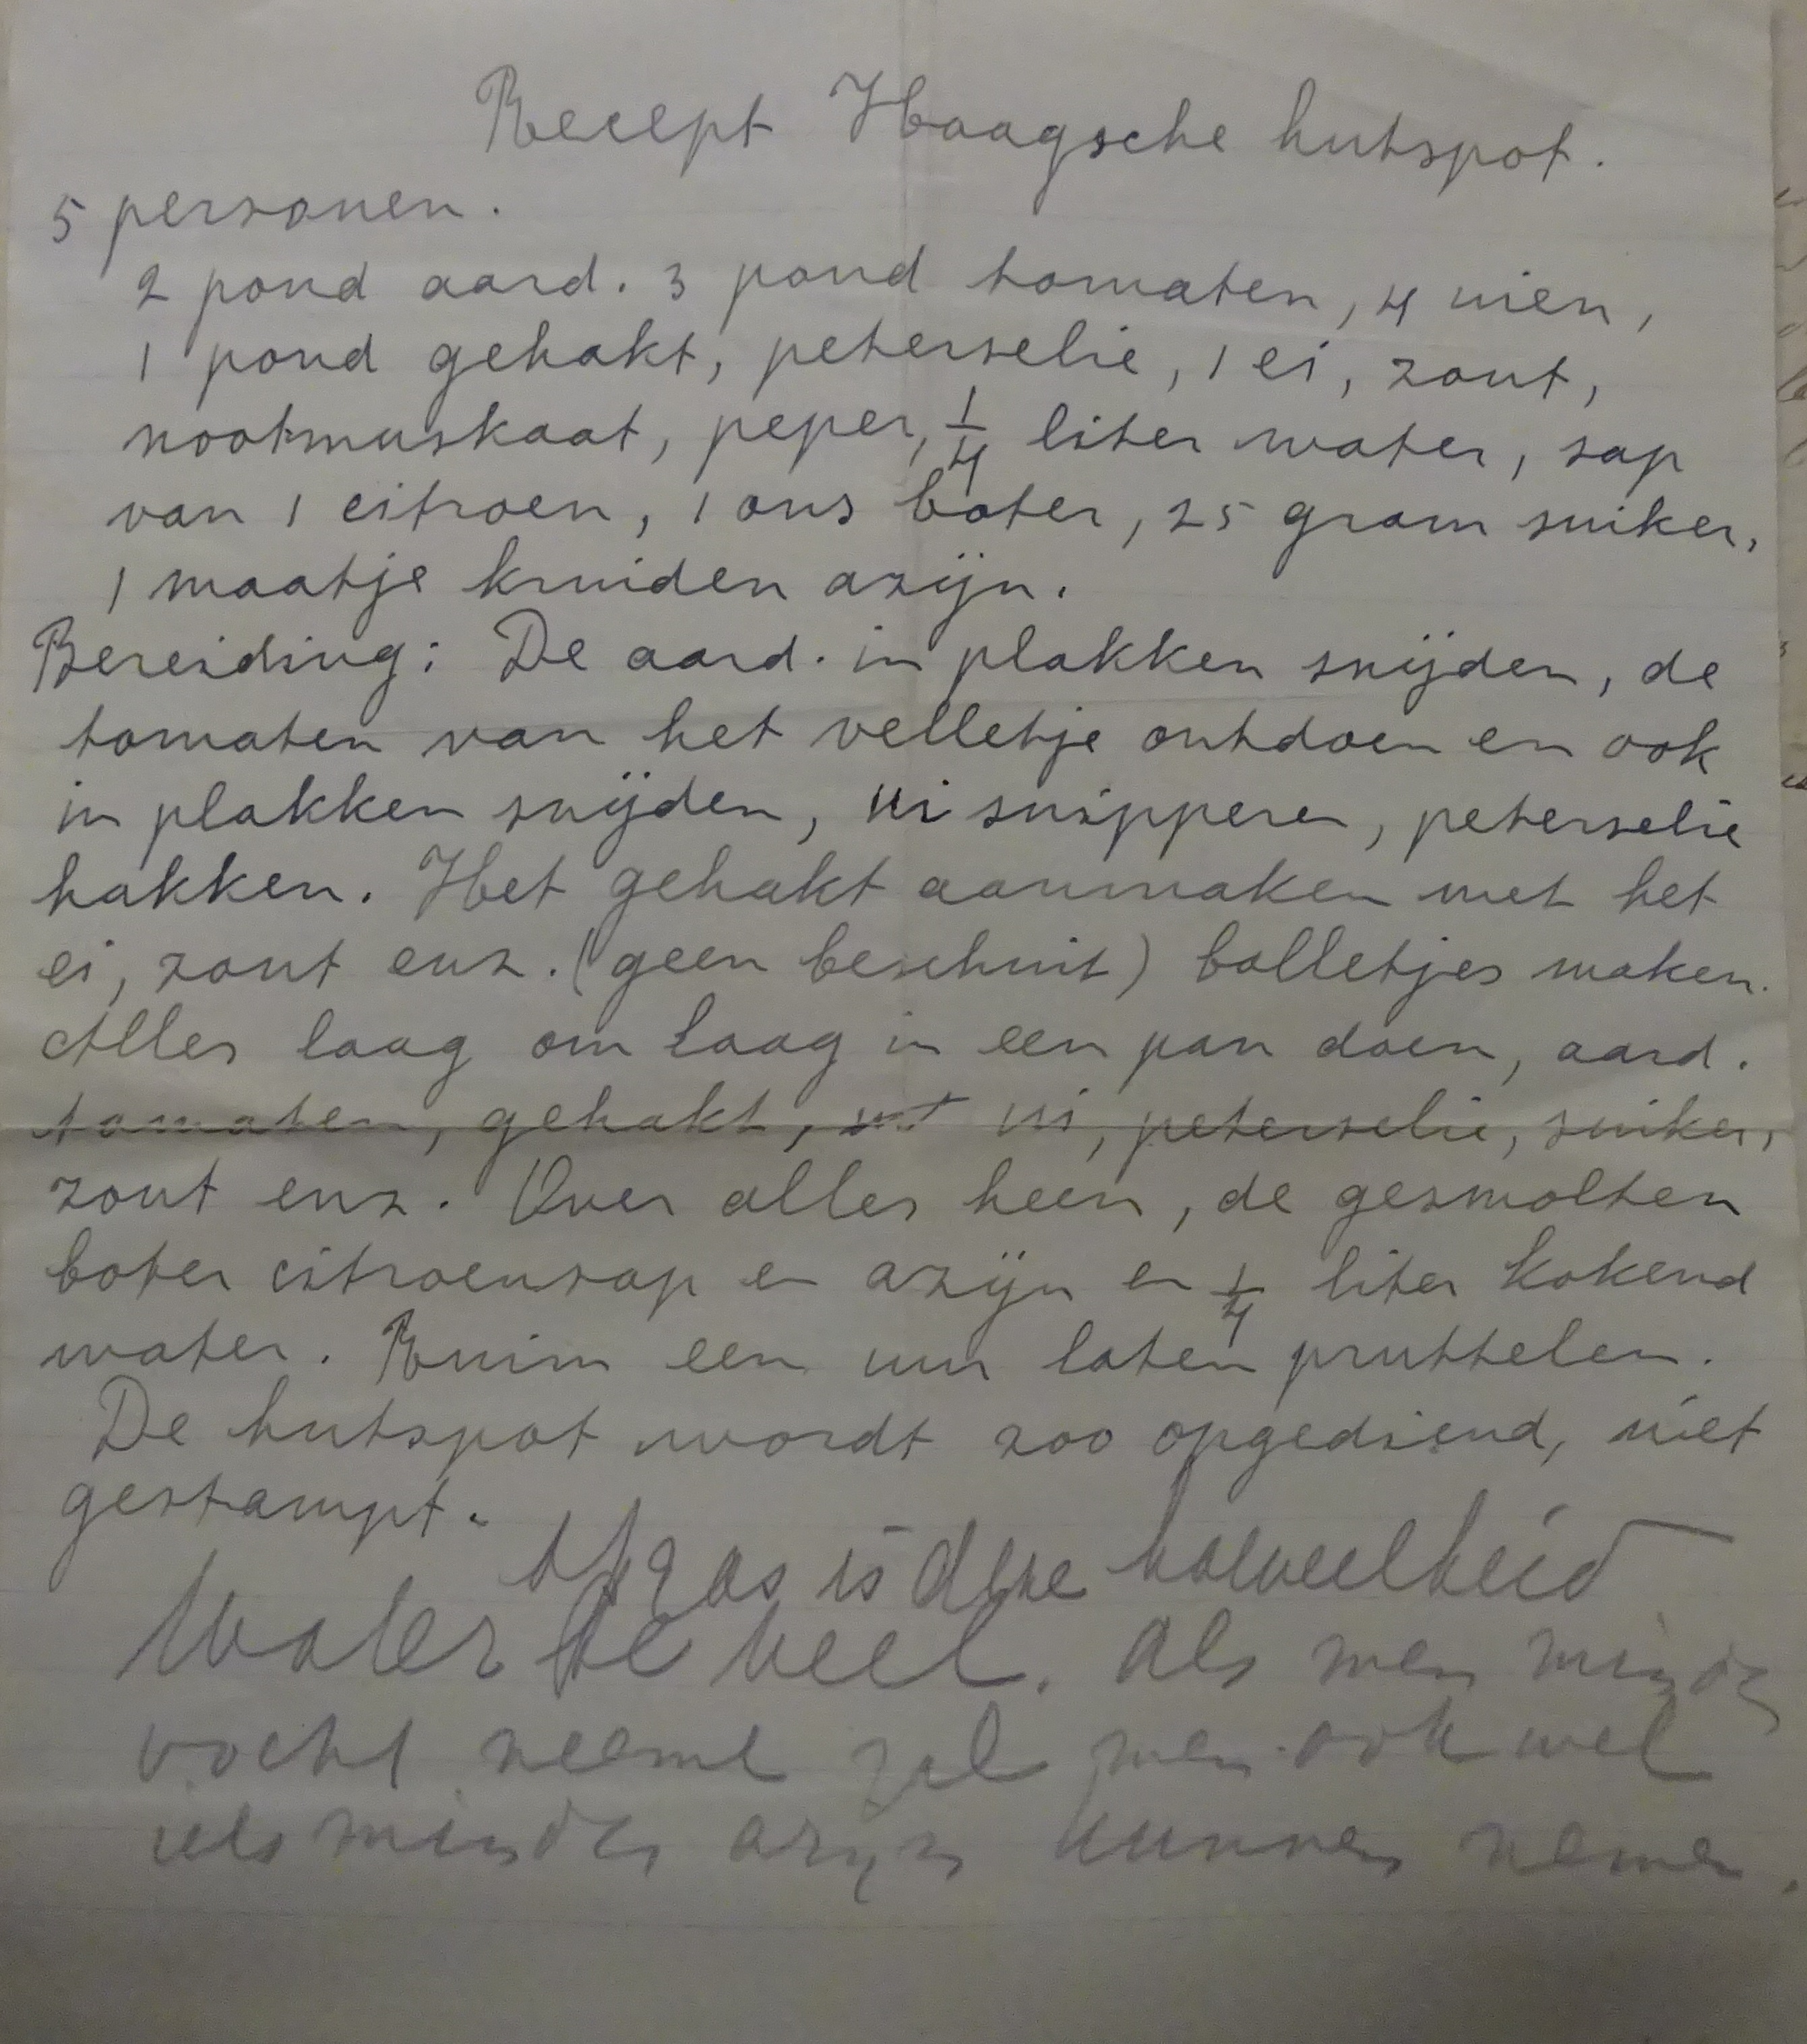 Recept Haagsche hutspot.
5 personen.
2 pond aard. 3 pond tomaten, 4 uien,
1 pond gehakt, peterselie, 1 ei, zout,
nootmuskaat, peper, 1/4 liter water, sap
van 1 citroen, 1 ons boter, 25 gram suiker,
1 maatje kruiden azijn.
Bereiding: De aard. in plakken snijden, de
tomaten van het velletje ontdoen en ook
in plakken snijden, ui snipperen, peterselie
hakken. Het gehakt aanmaken met het
ei, zout enz. (geen beschuit) balletjes maken.
Alles laag om laag in een pan doen, aard.
tomaten, gehakt, ui, peterselie, suiker,
zout enz. Over alles heen, de gesmolten
boter citroensap en azijn en 1/4 liter kokend
water. Ruim een uur laten pruttelen.
De hutspot wordt zoo opgediend, niet
gestampt.
Op gas is deze hoeveelheid
Water te veel. Als men minder
vocht neemt zal men ook wel
iets minder azijn kunnen nemen.